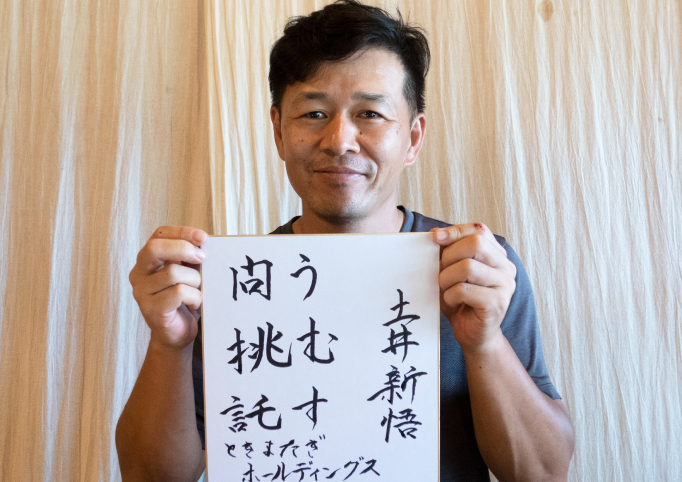 問う
挑む
託す
土井新悟
ときまたぎ
ホールディングス